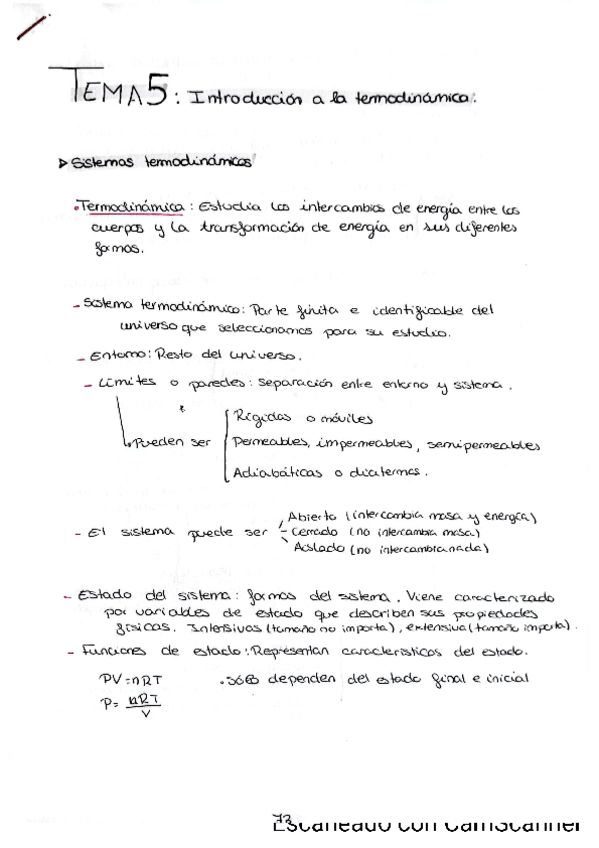 TEMA 5: Introducción a la termodinámica.
▷ Sistemas termodinámicos
• Termodinámica: Estudia los intercambios de energía entre los
cuerpos y la transformación de energía en sus diferentes
formas.
- Sistema termodinámico: Parte finita e identificable del
universo que seleccionamos para su estudio.
- Entorno: Resto del universo.
- Límites o paredes: separación entre entorno y sistema.
Rígidas o móviles
Pueden ser Permeables, impermeables, semipermeables
Adiabáticas o diatermas.
Abierto (intercambia masa y energía)
- El sistema puede ser - Cerrado (no intercambia masa)
Aislado (no intercambia nada)
- Estado del sistema: formas del sistema. Viene caracterizado
por variables de estado que describen sus propiedades
físicas. Intensivas (tamaño no importa), extensiva (tamaño importa).
- Funciones de estado: Representan características del estado.
PV=nRT . Solo dependen del estado final e inicial
P= nRT
V
73
Escaneado con CamScanner